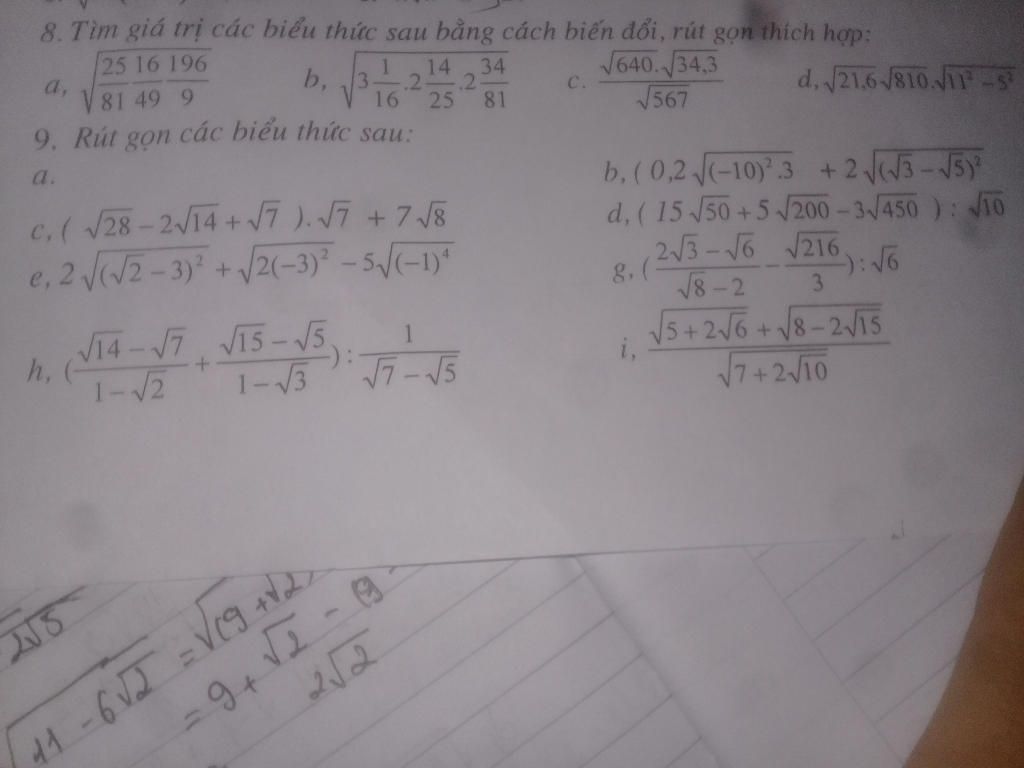 8. Tìm giá trị các biểu thức sau bằng cách biến đổi, rút gọn thích hợp:
a, √(25/81 16/49 196/9) b, √(3 1/16 . 2 14/25 . 2 34/81) c. (√640 . √34,3)/√567 d, √21,6 √810 . √(11² − 5²)
9. Rút gọn các biểu thức sau:
a. b, ( 0,2 √((−10)² . 3) + 2 √((√3 − √5)²)
c, ( √28 − 2√14 + √7 ) . √7 + 7√8 d, ( 15 √50 + 5 √200 − 3√450 ) : √10
e, 2 √((√2 − 3)²) + √(2(−3)²) − 5√((−1)⁴) g, ((2√3 − √6)/(√8 − 2) − √216/3) : √6
h, ((√14 − √7)/(1 − √2) + (√15 − √5)/(1 − √3)) : 1/(√7 − √5) i, (√(5 + 2√6) + √(8 − 2√15))/√(7 + 2√10)
2√5
√(11 − 6√2) = √(9 + √2
= 9 + √2 − 9
2√2